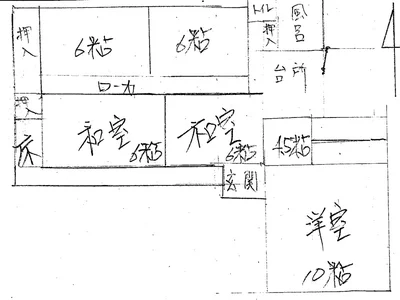 押入
6粘
6粘
トイレ
押入
風呂
台所
ローカ
押入
床
和室
6粘
和室
6粘
4.5粘
玄関
洋室
10粘